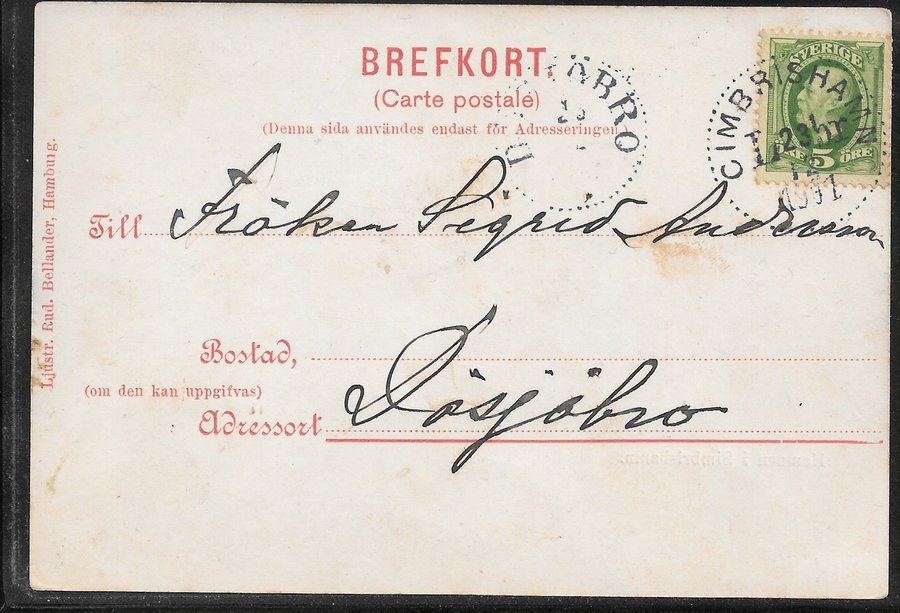 BREFKORT.
(Carte postale)
(Denna sida användes endast för Adresseringen)
SVERIGE
5
ÖRE
CIMBRISHAMN
Till Fröken Segrid Andersson
Bostad,
(om den kan uppgifvas)
Adressort Dösjöbro
Ljustr. Rud. Bellander, Hamburg.
Hamnen i Simbrishamn.